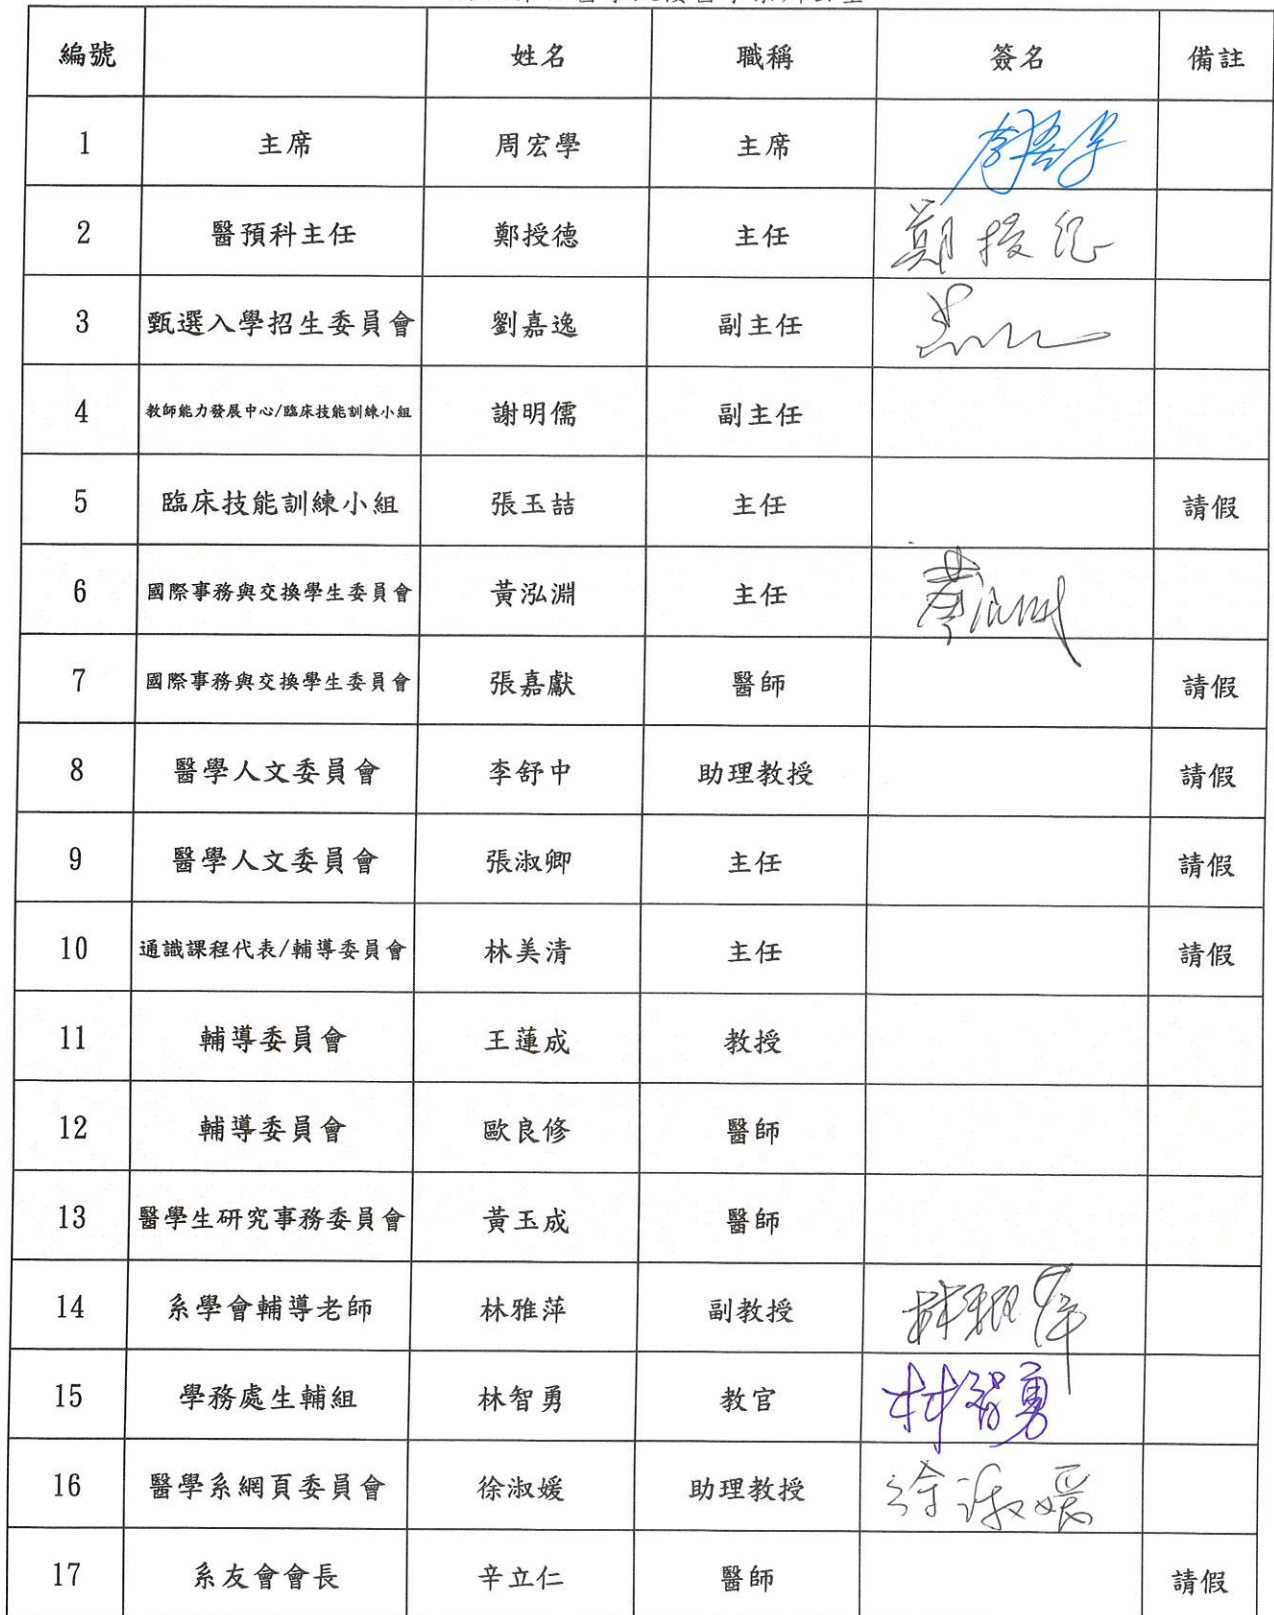 編號 姓名 職稱 簽名 備註
1 主席 周宏學 主席
2 醫預科主任 鄭授德 主任 鄭授德
3 甄選入學招生委員會 劉嘉逸 副主任
4 教師能力發展中心/臨床技能訓練小組 謝明儒 副主任
5 臨床技能訓練小組 張玉喆 主任 請假
6 國際事務與交換學生委員會 黃泓淵 主任
7 國際事務與交換學生委員會 張嘉獻 醫師 請假
8 醫學人文委員會 李舒中 助理教授 請假
9 醫學人文委員會 張淑卿 主任 請假
10 通識課程代表/輔導委員會 林美清 主任 請假
11 輔導委員會 王蓮成 教授
12 輔導委員會 歐良修 醫師
13 醫學生研究事務委員會 黃玉成 醫師
14 系學會輔導老師 林雅萍 副教授 林雅萍
15 學務處生輔組 林智勇 教官 林智勇
16 醫學系網頁委員會 徐淑媛 助理教授 徐淑媛
17 系友會會長 辛立仁 醫師 請假